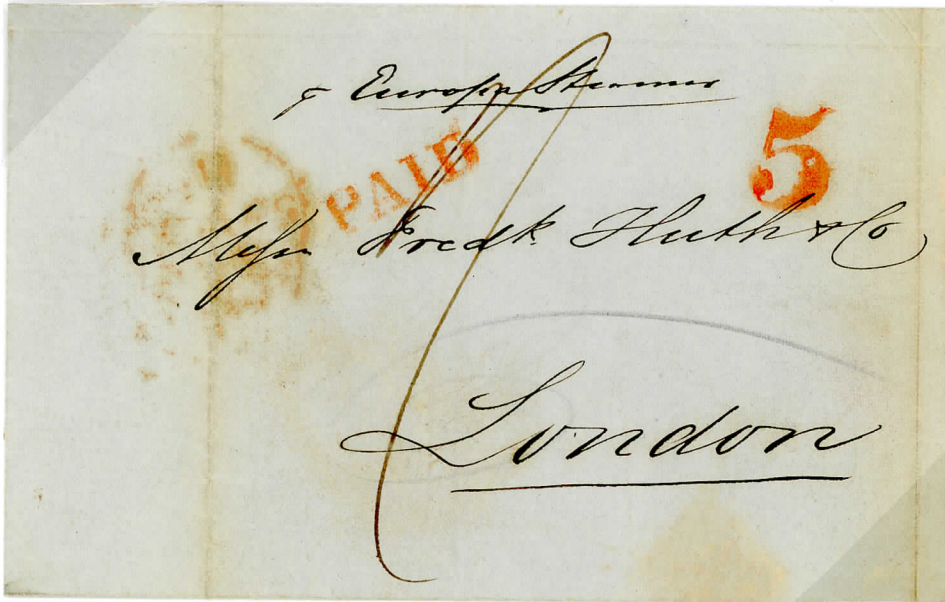 p Europa Steamer
PAID
5
Messrs Fredk Huth & Co
London